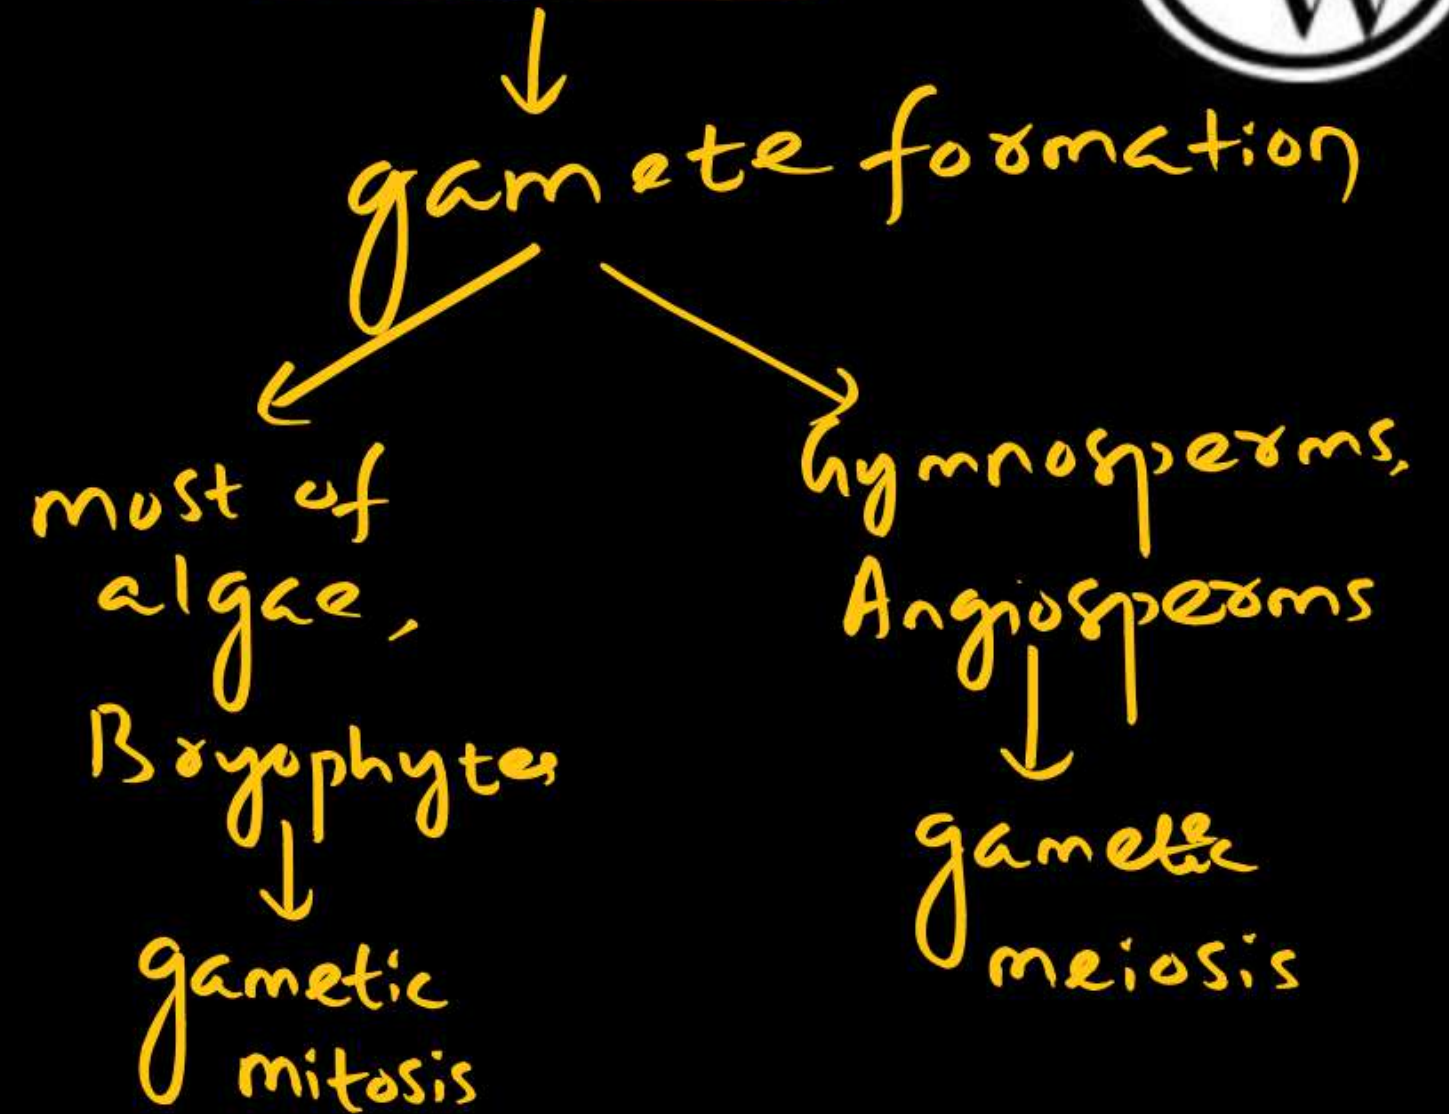 gamete formation
most of
algae,
Bryophytes
gametic
mitosis
Gymnosperms,
Angiosperms
gametic
meiosis